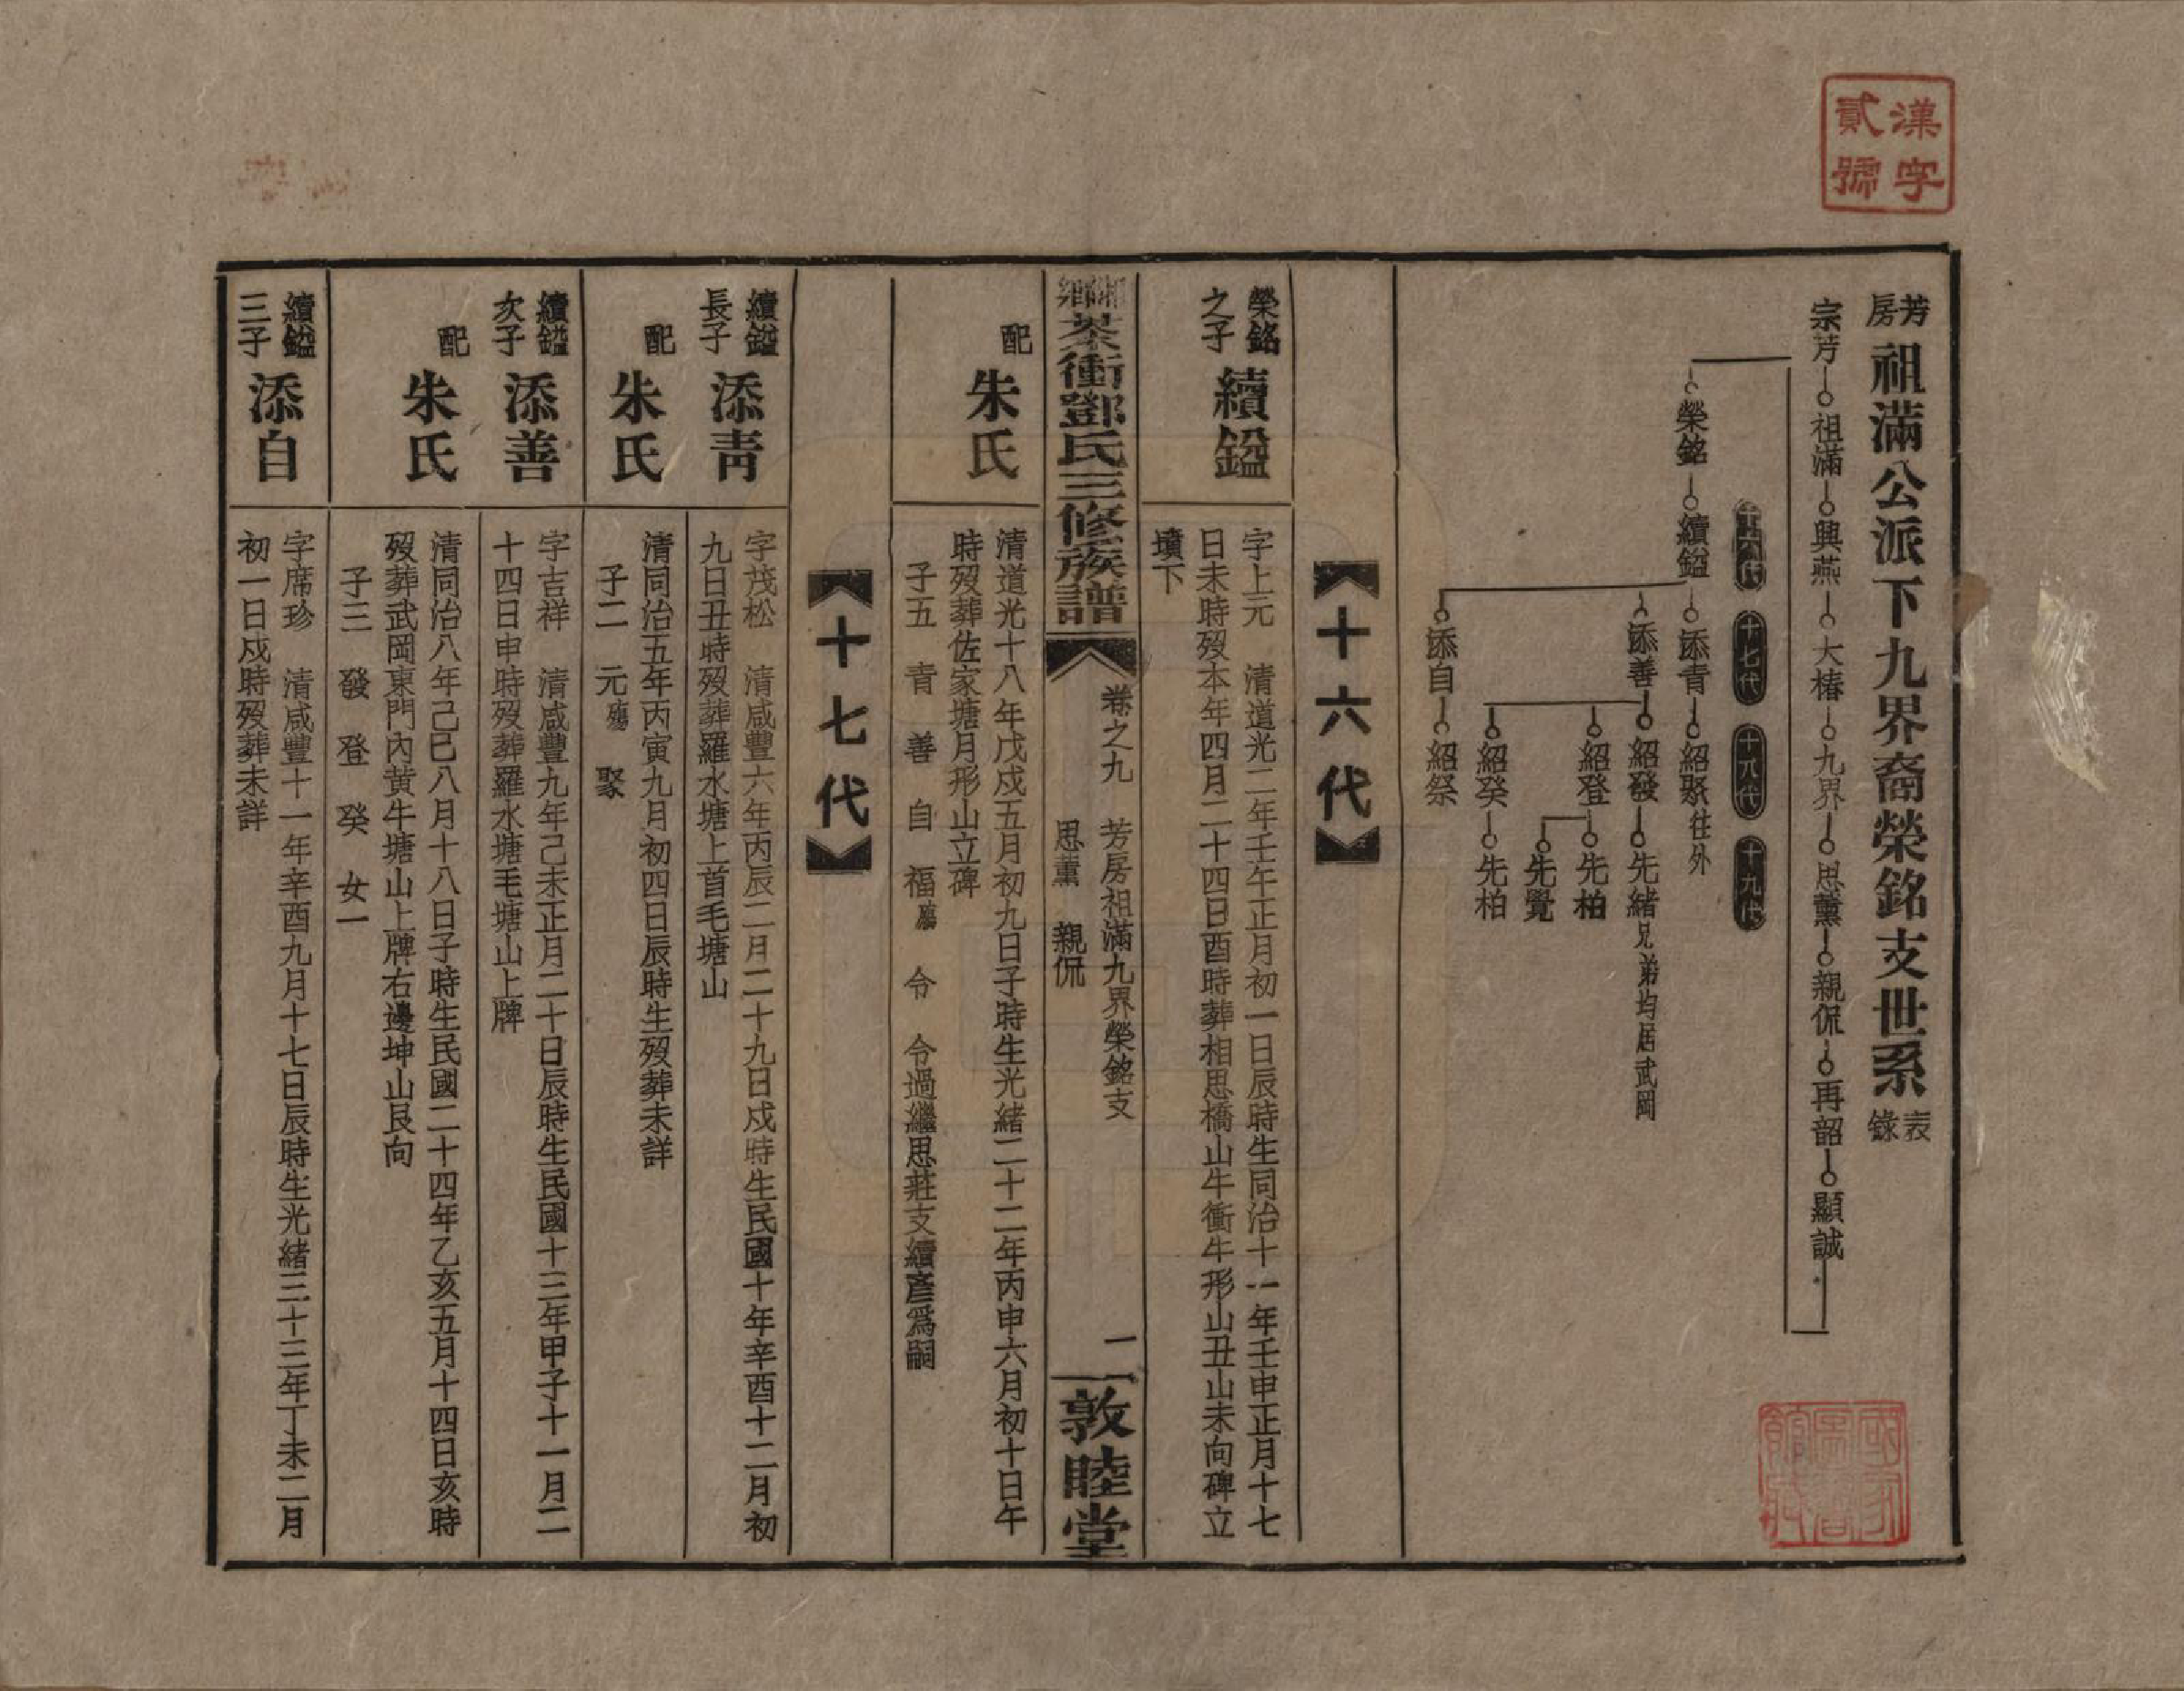 漢字
貳號
芳房祖滿公派下九界裔榮銘支世系表錄
宗芳 祖滿 興燕 大椿 九界 思薰 親侃 再韶 顯誠
十六代 十七代 十八代 十九代
榮銘 續鎰 添青 紹聚往外
添善 紹發 先緒兄弟均居武岡
紹登 先柏
先覺
紹癸 先柏
添自 紹祭
十六代
榮銘之子 續鎰
字上元 清道光二年壬午正月初一日辰時生同治十一年壬申正月十七
日未時歿本年四月二十四日酉時葬相思橋山牛衝牛形山丑山未向碑立
墳下
湘鄉茶衝鄧氏三修族譜
卷之九 芳房祖滿九界榮銘支
思薰 親侃
二
敦睦堂
配 朱氏
清道光十八年戊戍五月初九日子時生光緒二十二年丙申六月初十日午
時歿葬佐家塘月形山立碑
子五 青 善 自 福殤 令 令過繼思莊支續彥爲嗣
十七代
續鎰長子 添青
字茂松 清咸豐六年丙辰二月二十九日戍時生民國十年辛酉十二月初
九日丑時歿葬羅水塘上首毛塘山
配 朱氏
清同治五年丙寅九月初四日辰時生歿葬未詳
子二 元殤 聚
續鎰次子 添善
字吉祥 清咸豐九年己未正月二十日辰時生民國十三年甲子十一月二
十四日申時歿葬羅水塘毛塘山上牌
配 朱氏
清同治八年己巳八月十八日子時生民國二十四年乙亥五月十四日亥時
歿葬武岡東門內黄牛塘山上牌右邊坤山艮向
子三 發 登 癸 女一
續鎰三子 添自
字席珍 清咸豐十一年辛酉九月十七日辰時生光緒三十三年丁未二月
初一日戍時歿葬未詳
國家圖書館藏